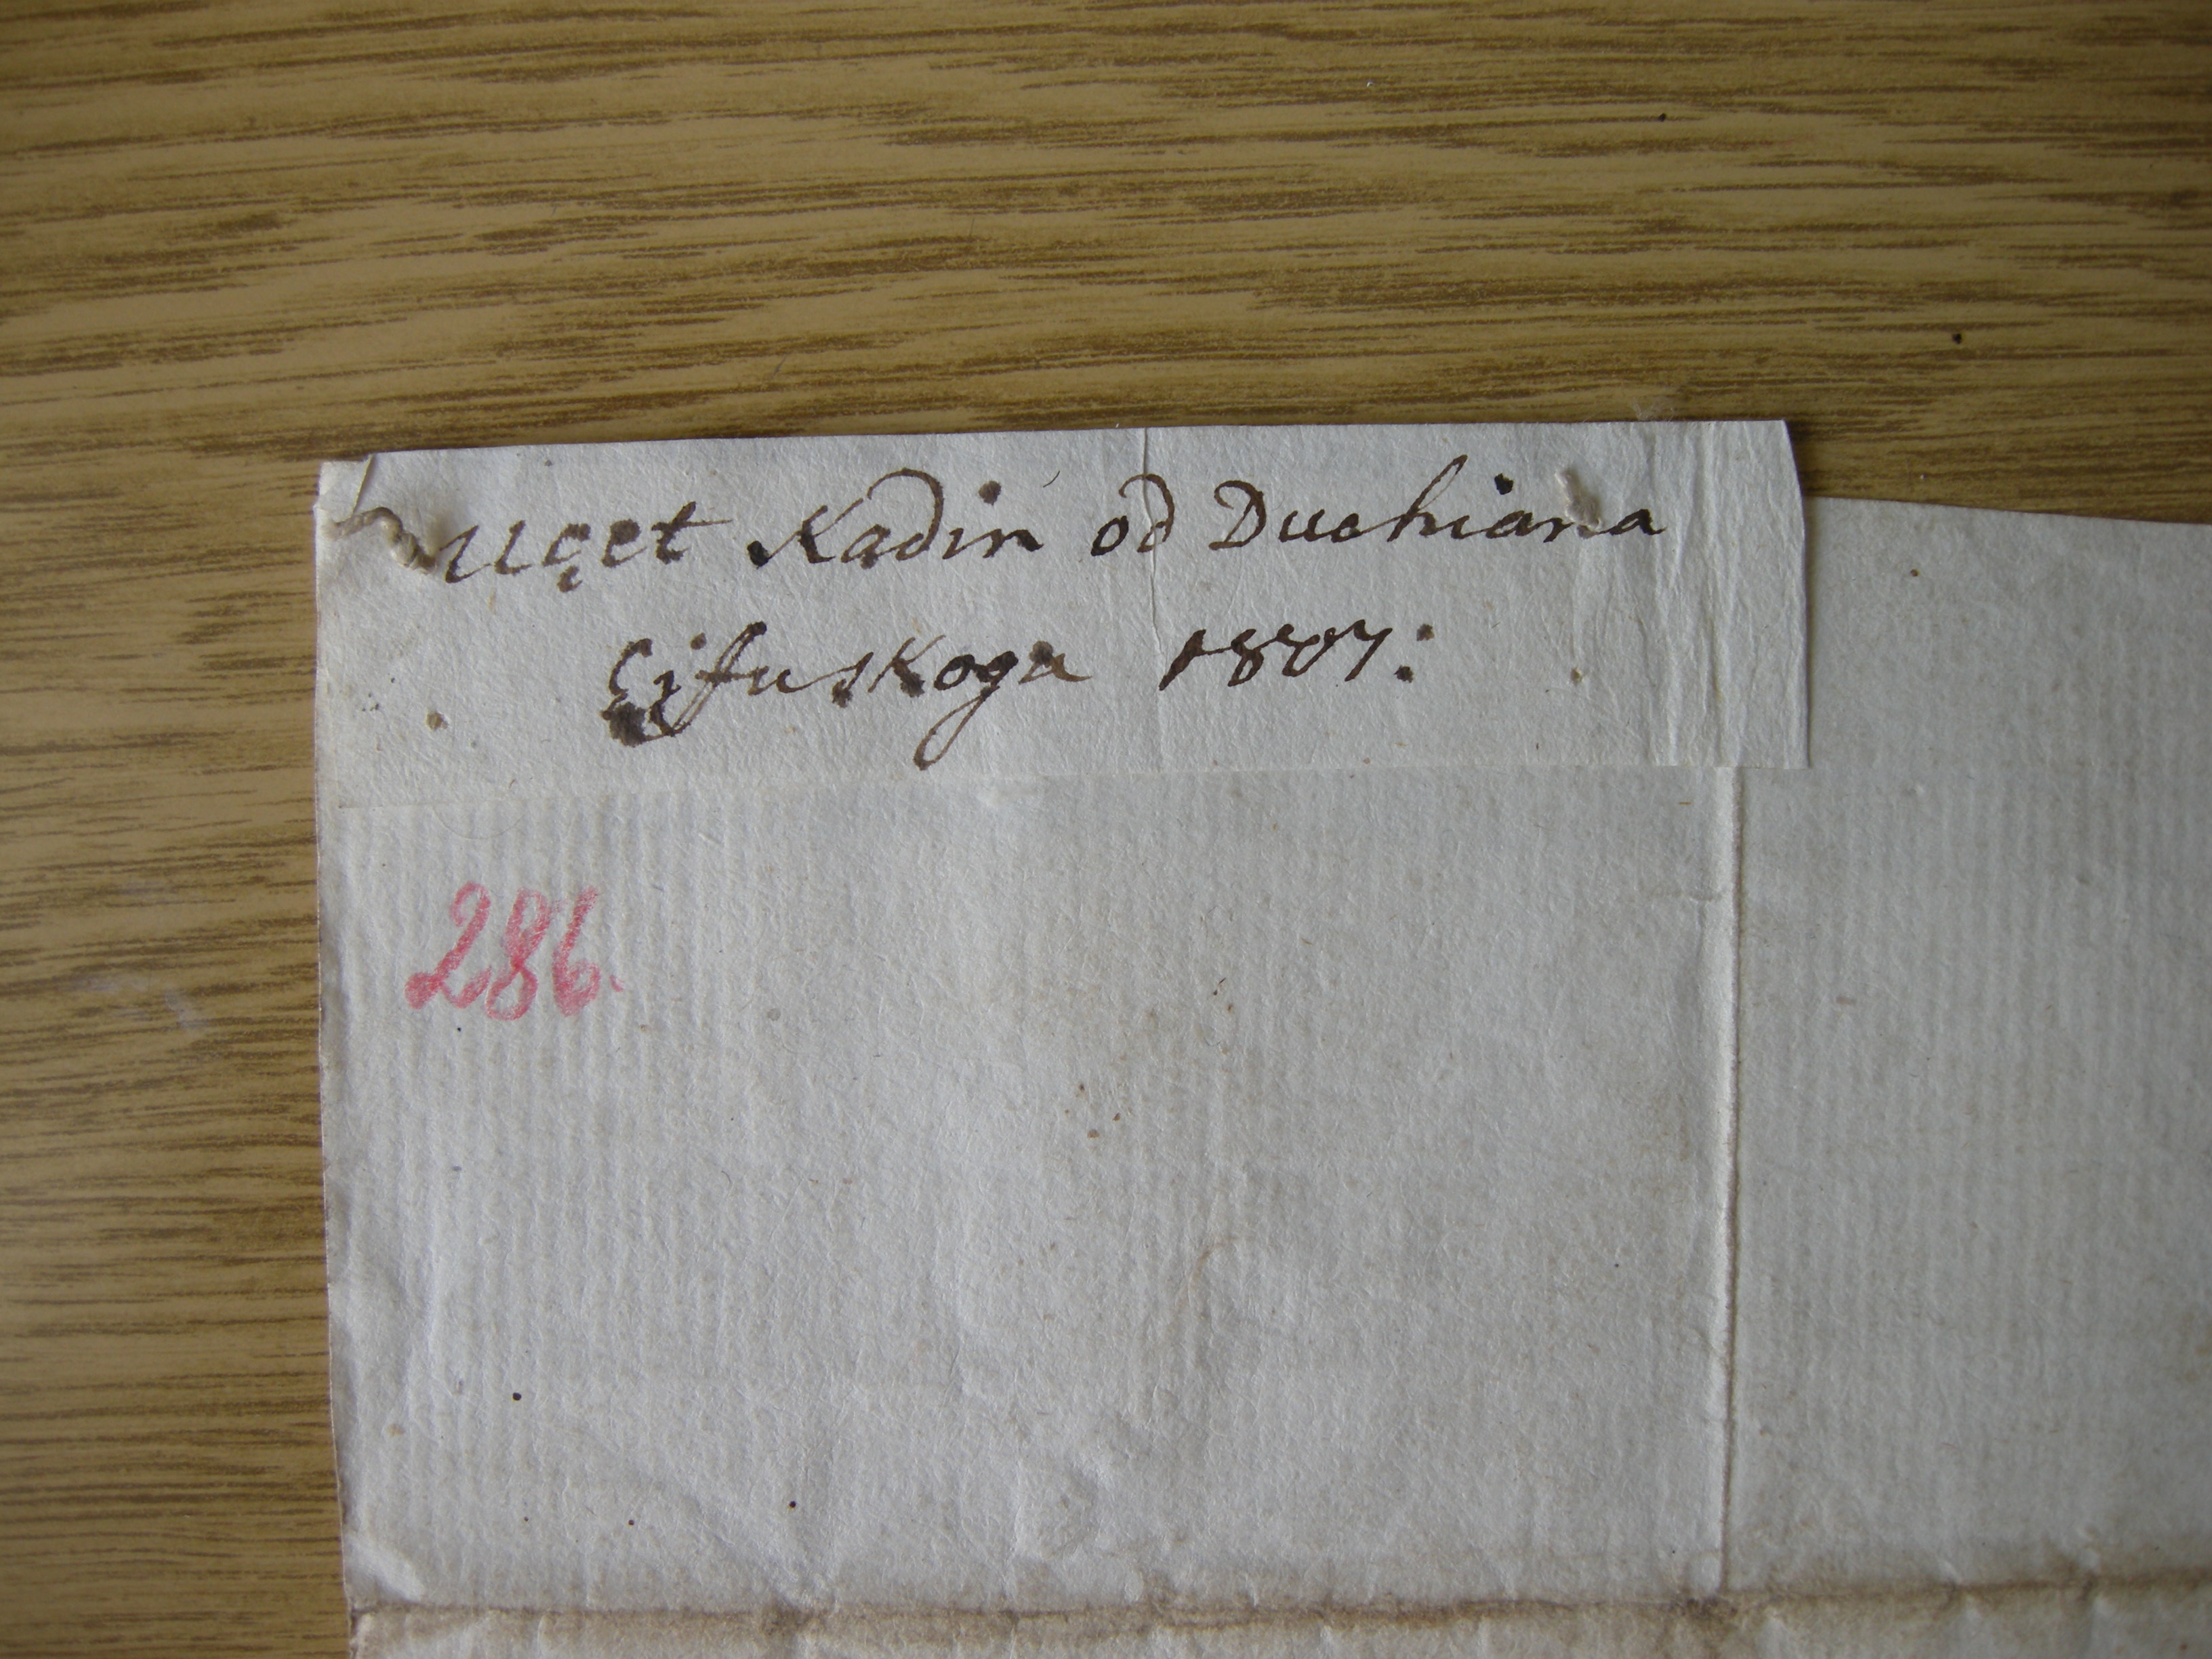 Huçet Kadin od Duchiana
Çifuskoga 1807:
286.